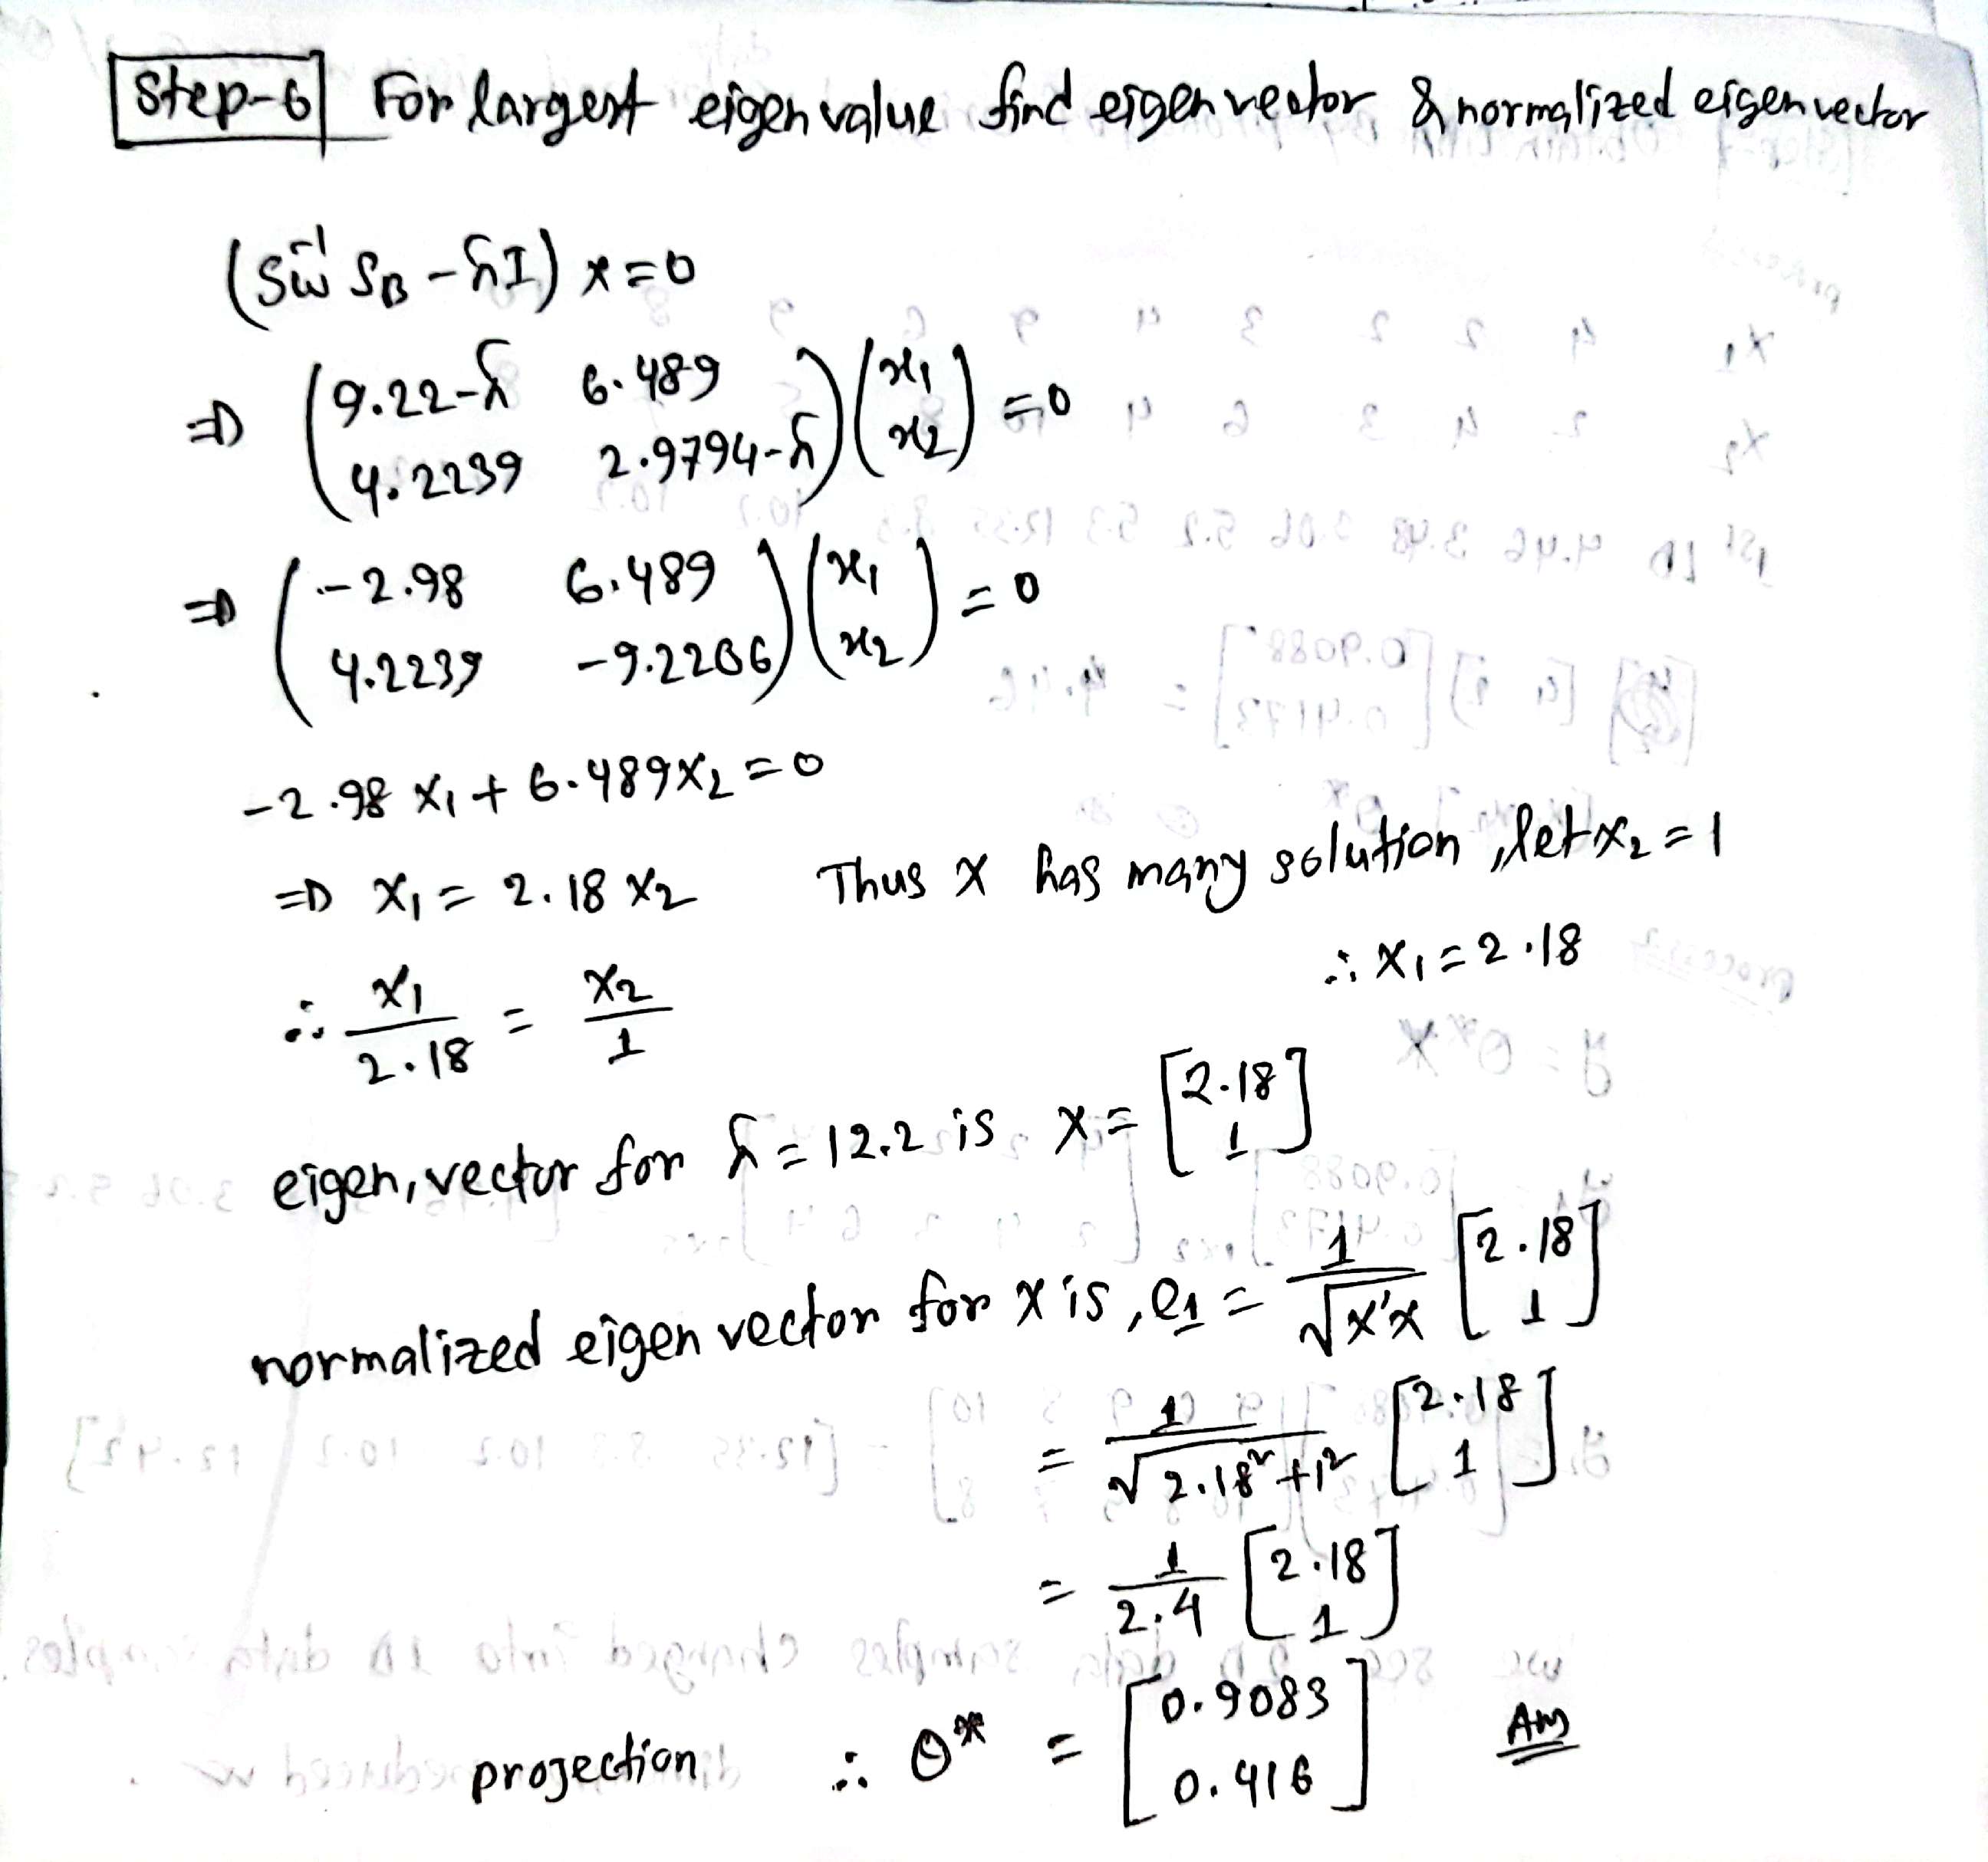 Step-6 For largest eigen value find eigen vector & normalized eigen vector
(Sw⁻¹ SB - λI) x = 0
⇒ (9.22-λ 6.489
4.2239 2.9794-λ) (x1
x2) = 0
⇒ (-2.98 6.489
4.2239 -9.2206) (x1
x2) = 0
-2.98 x1 + 6.489 x2 = 0
⇒ x1 = 2.18 x2 Thus x has many solution, let x2 = 1
∴ x1 = 2.18
∴ x1/2.18 = x2/1
eigen, vector for λ = 12.2 is x = [2.18
1]
normalized eigen vector for x is, e1 = 1/√x'x [2.18
1]
= 1/√2.18² + 1² [2.18
1]
= 1/2.4 [2.18
1]
projection ∴ θ* = [0.9083
0.416] Ans